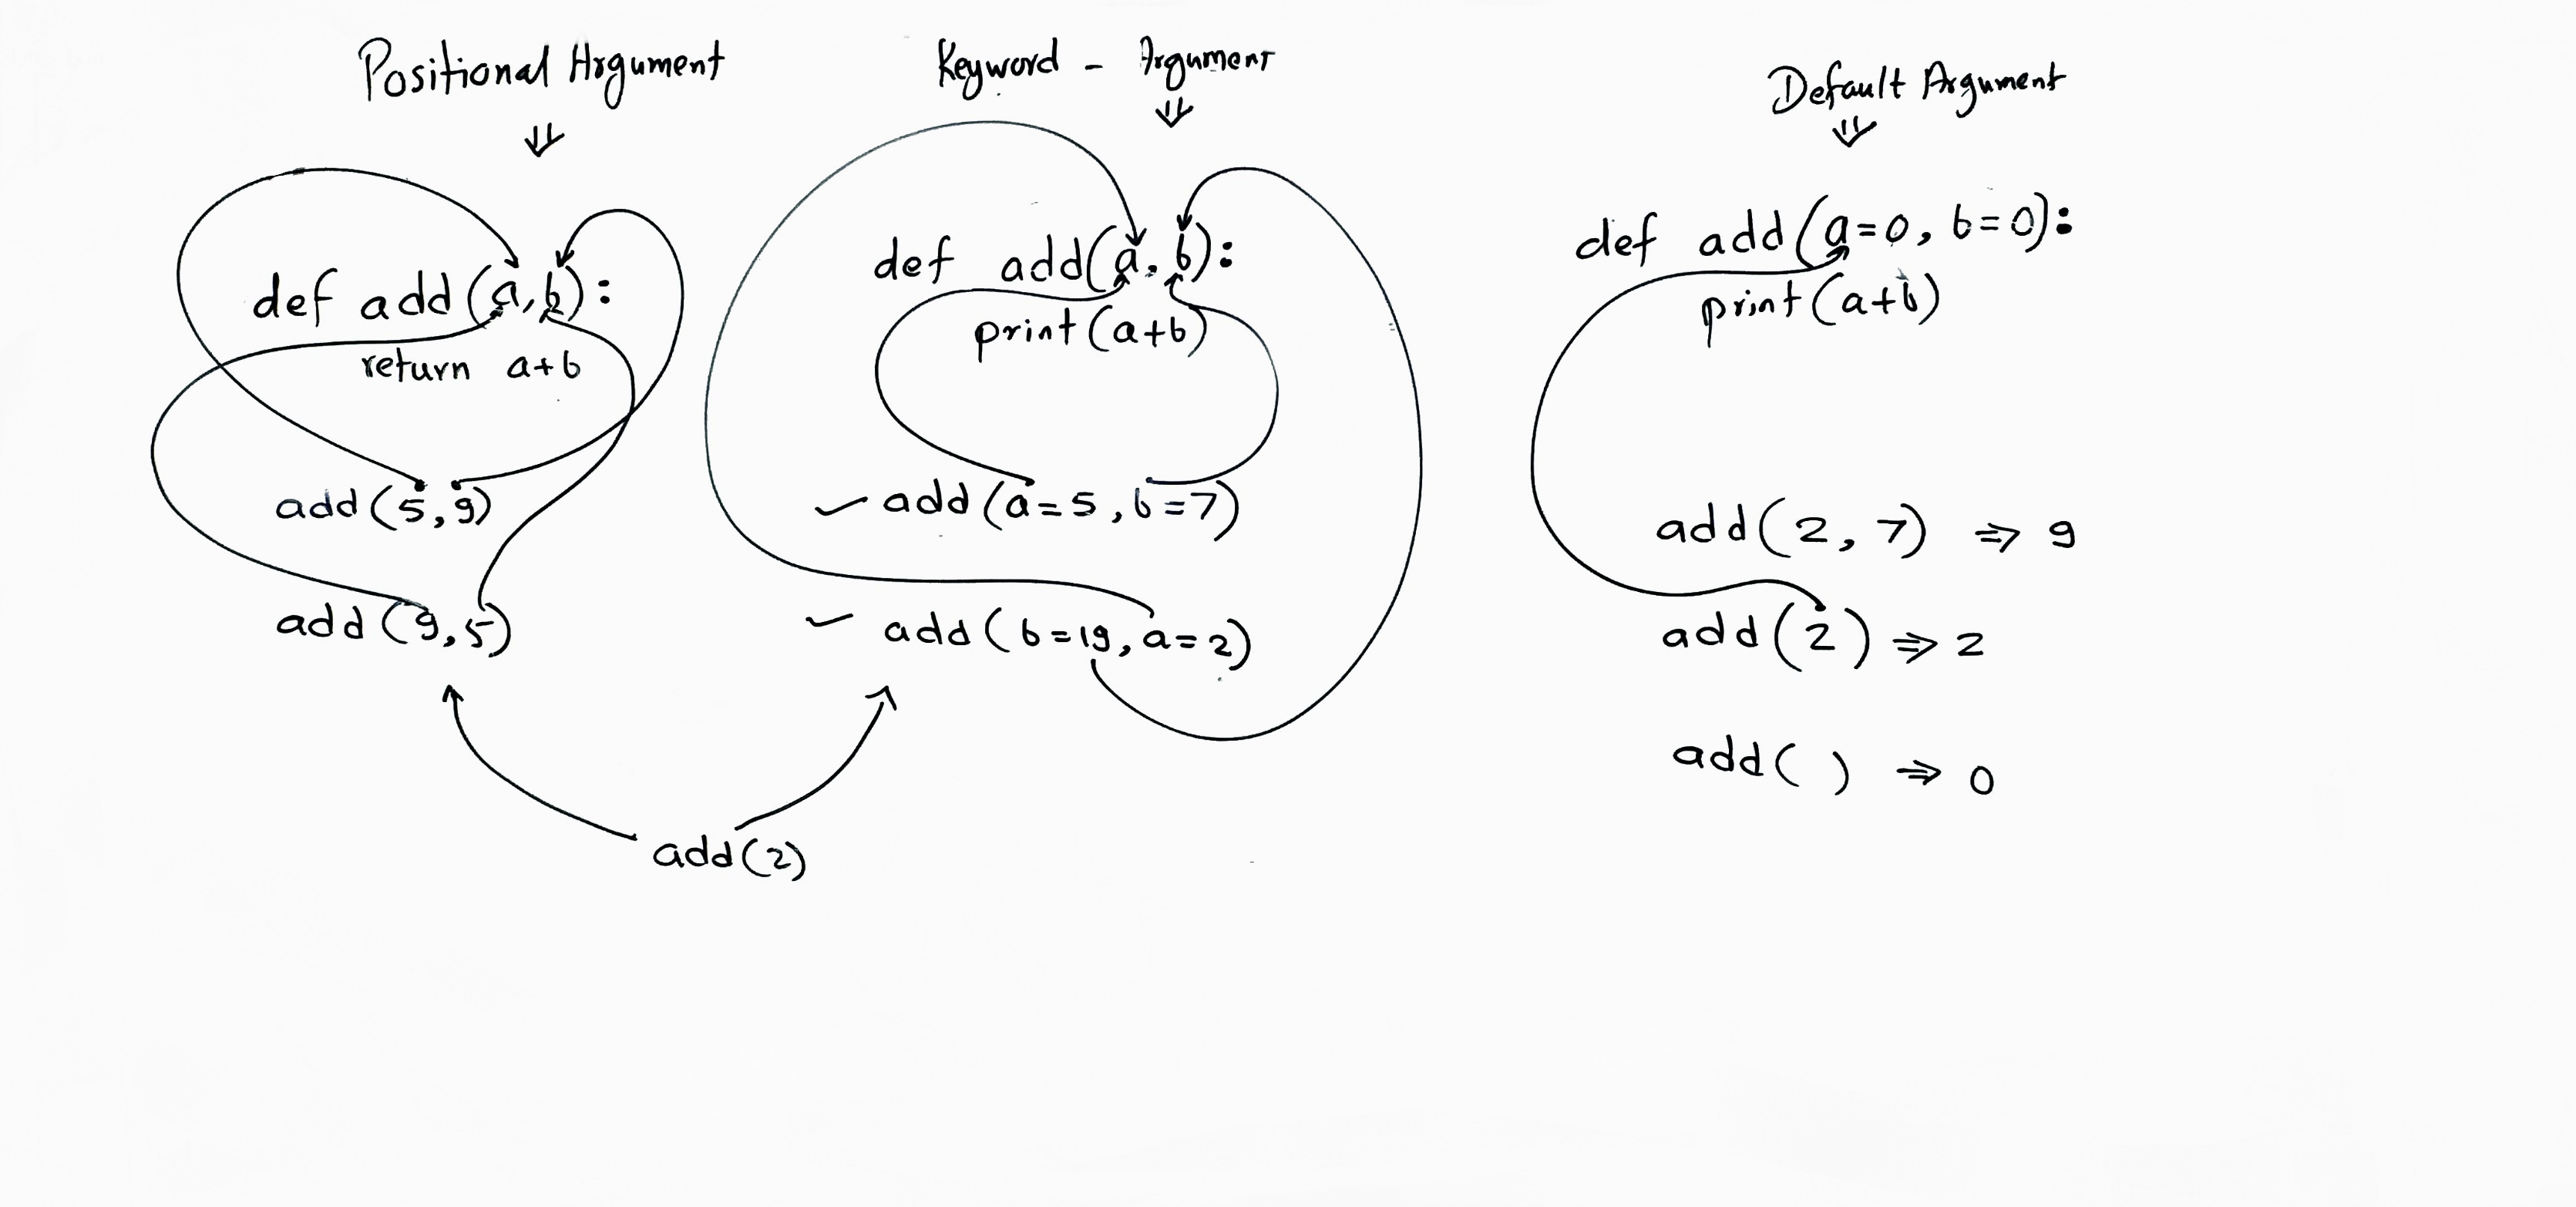 Positional Argument
def add(a,b):
return a+b
add(5,9)
add(9,5)
Keyword - Argument
def add(a,b):
print(a+b)
add(a=5,b=7)
add(b=19,a=2)
add(2)
Default Argument
def add(a=0, b=0):
print(a+b)
add(2, 7) ⇒ 9
add(2) ⇒ 2
add( ) ⇒ 0